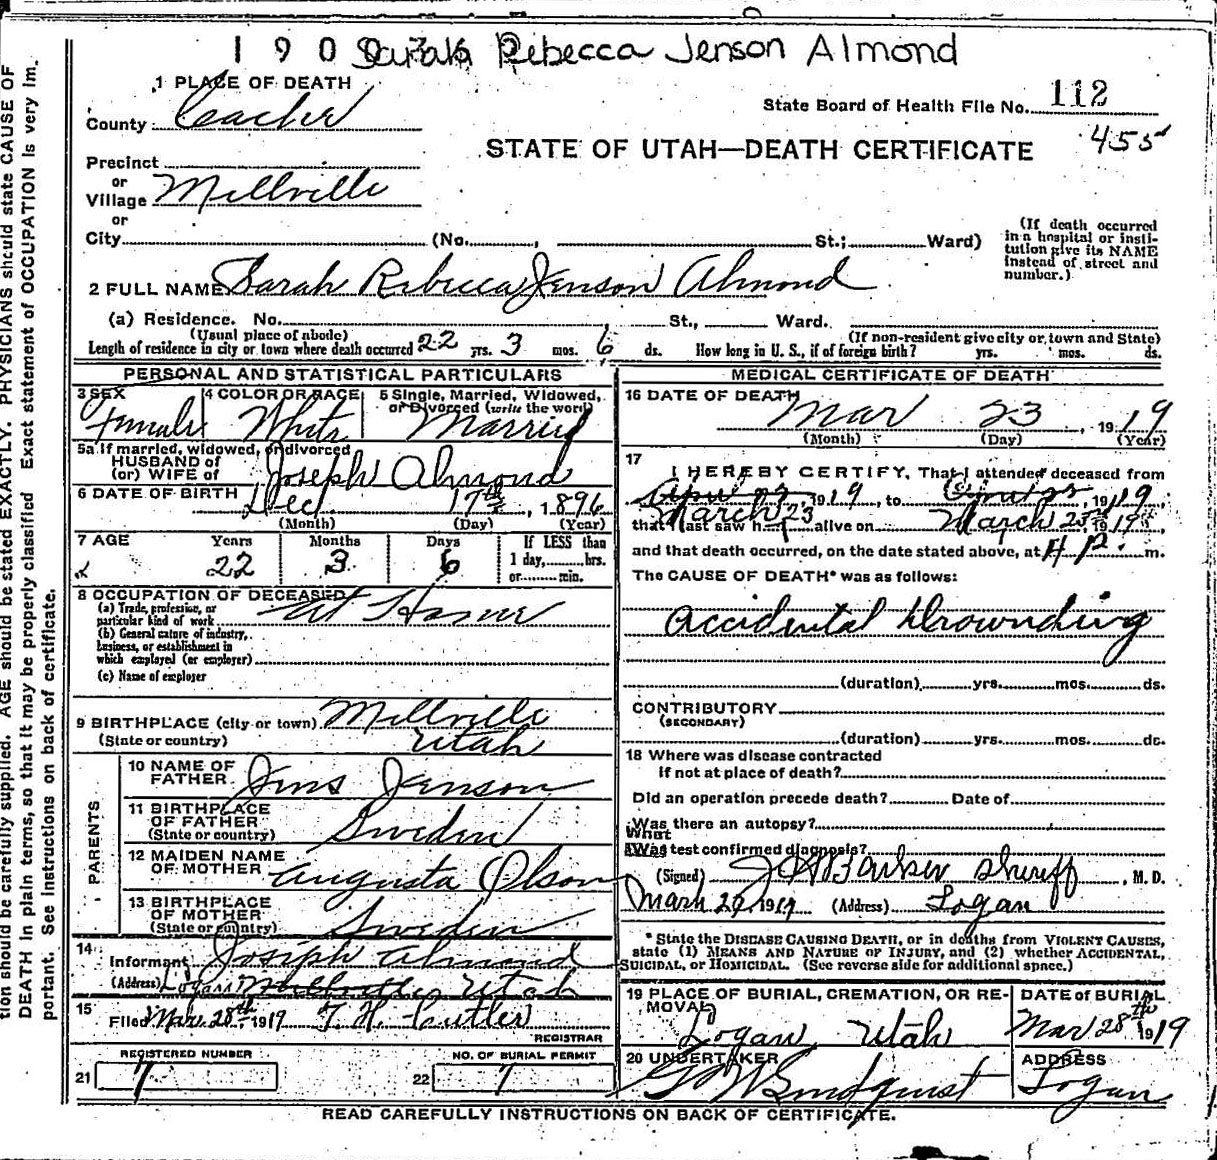 1900 Sarah Rebecca Jenson Almond
1 PLACE OF DEATH
County Cache
State Board of Health File No. 112
455
STATE OF UTAH—DEATH CERTIFICATE
Precinct
or
Village Millville
or
City (No. , St.; Ward)
(If death occurred
in a hospital or insti-
tution give its NAME
instead of street and
number.)
2 FULL NAME Sarah Rebecca Jenson Almond
(a) Residence. No. St., Ward.
(Usual place of abode) (If non-resident give city or town and State)
Length of residence in city or town where death occurred 22 yrs. 3 mos. 6 ds. How long in U. S., if of foreign birth? yrs. mos. ds.
PERSONAL AND STATISTICAL PARTICULARS
3 SEX Female
4 COLOR OR RACE White
5 Single, Married, Widowed,
or Divorced (write the word)
Married
5a If married, widowed, or divorced
HUSBAND of
(or) WIFE of Joseph Almond
6 DATE OF BIRTH Dec 17th, 1896
(Month) (Day) (Year)
7 AGE Years Months Days If LESS than
22 3 6 1 day, hrs.
or min.
8 OCCUPATION OF DECEASED At Home
(a) Trade, profession, or
particular kind of work
(b) General nature of industry,
business, or establishment in
which employed (or employer)
(c) Name of employer
9 BIRTHPLACE (city or town) Millville
(State or country) Utah
PARENTS
10 NAME OF
FATHER Jens Jenson
11 BIRTHPLACE
OF FATHER
(State or country) Sweden
12 MAIDEN NAME
OF MOTHER Augusta Olson
13 BIRTHPLACE
OF MOTHER
(State or country) Sweden
14 Informant Joseph Almond
(Address) Logan Millville Utah
15 Filed Mar. 28th 1919 T. H. Cutler
REGISTRAR
REGISTERED NUMBER NO. OF BURIAL PERMIT
21 7 22 7
MEDICAL CERTIFICATE OF DEATH
16 DATE OF DEATH
Mar 23, 1919
(Month) (Day) (Year)
17 I HEREBY CERTIFY, That I attended deceased from
April 1919, to 1919
March 23
that I last saw h alive on March 23rd, 1919
and that death occurred, on the date stated above, at 4 P. m.
The CAUSE OF DEATH* was as follows:
Accidental Drownding
(duration) yrs. mos. ds.
CONTRIBUTORY
(SECONDARY)
(duration) yrs. mos. ds.
18 Where was disease contracted
if not at place of death?
Did an operation precede death? Date of
Was there an autopsy?
What
Was test confirmed diagnosis?
(Signed) Barker Sheriff, M. D.
March 1919 (Address) Logan
* State the DISEASE CAUSING DEATH, or in deaths from VIOLENT CAUSES,
state (1) MEANS AND NATURE OF INJURY, and (2) whether ACCIDENTAL,
SUICIDAL, or HOMICIDAL. (See reverse side for additional space.)
19 PLACE OF BURIAL, CREMATION, OR RE-
MOVAL
Logan, Utah
DATE of BURIAL
Mar 28th 1919
20 UNDERTAKER
G W Lindquist
ADDRESS
Logan
READ CAREFULLY INSTRUCTIONS ON BACK OF CERTIFICATE.
tion should be carefully supplied. AGE should be stated EXACTLY. PHYSICIANS should state CAUSE OF
DEATH in plain terms, so that it may be properly classified Exact statement of OCCUPATION is very im-
portant. See instructions on back of certificate.